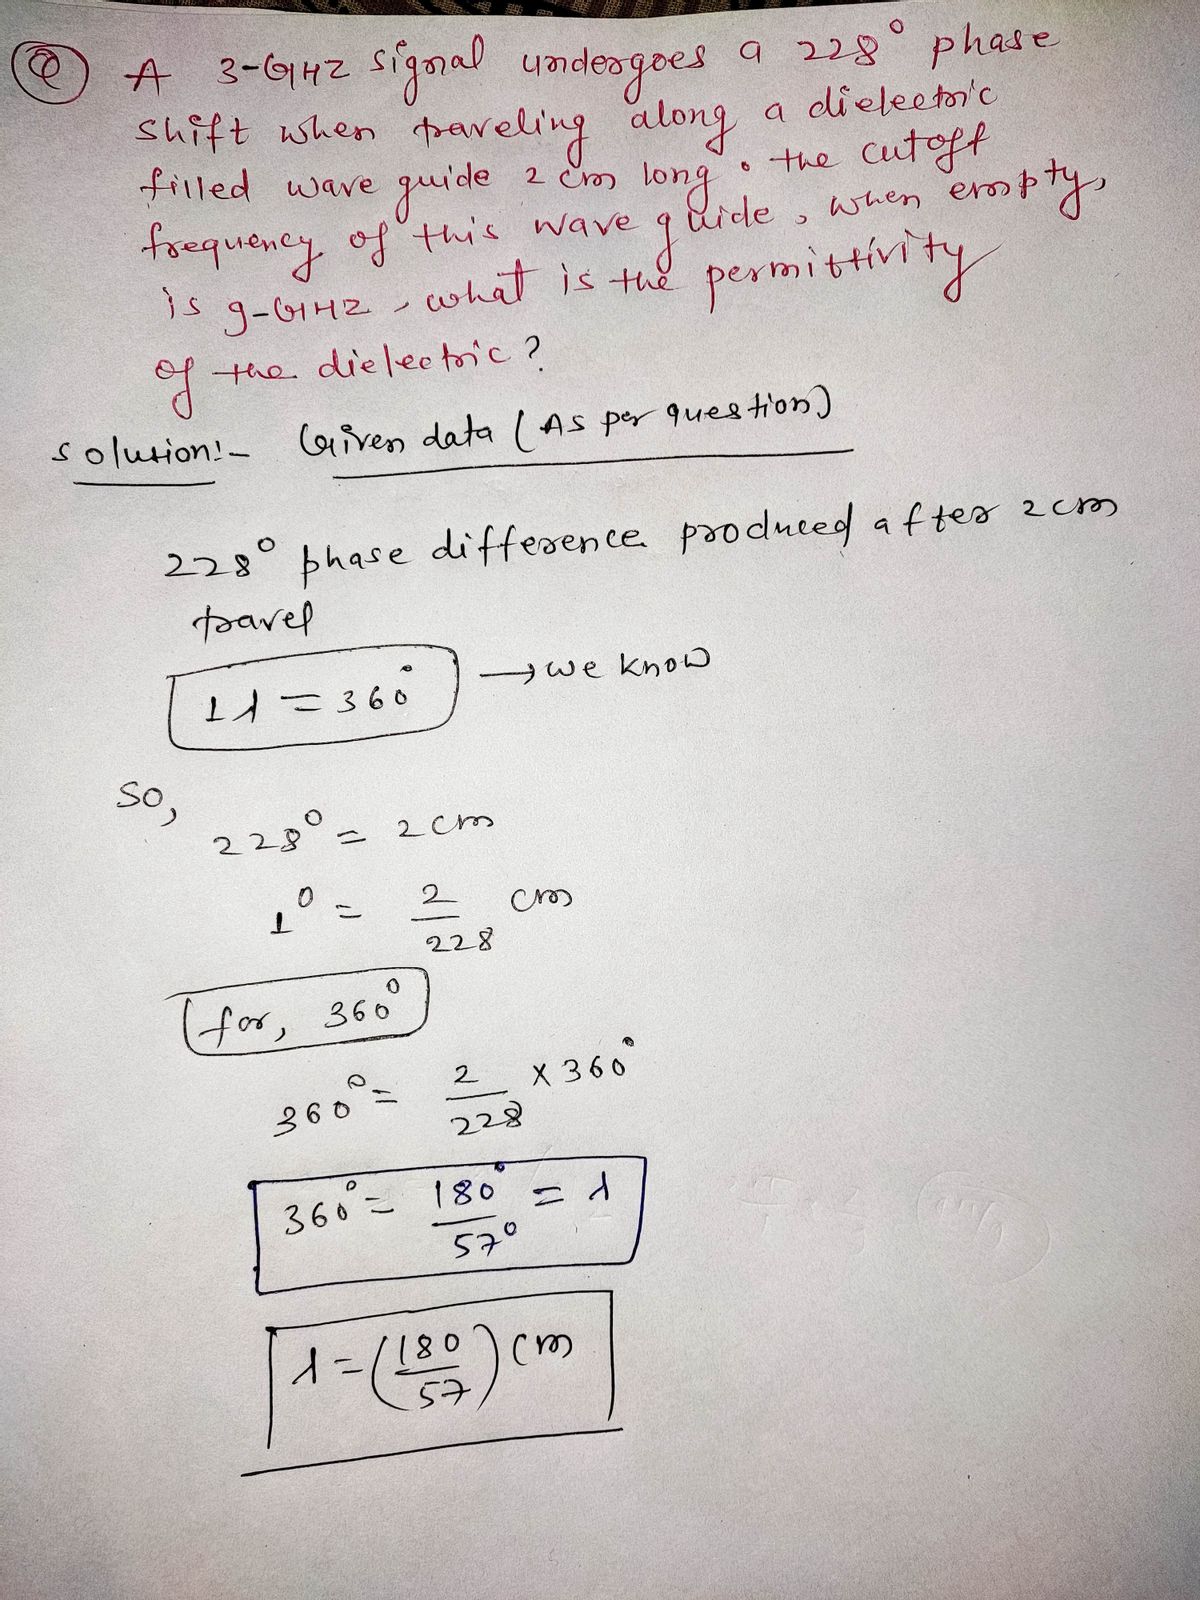 Q A 3-GHZ signal undergoes a 228° phase
shift when traveling along a dielectric
filled wave guide 2 cm long. the cutoff
frequency of this wave guide, when empty,
is 9-GHZ, what is the permittivity
of the dielectric?
solution:- Given data (As per question)
228° phase difference produced after 2cm
travel
1λ = 360° → we know
so,
228° = 2cm
1° = 2/228 cm
for, 360°
360° = 2/228 x 360°
360° = 180°/57° = λ
λ = (180/57) cm